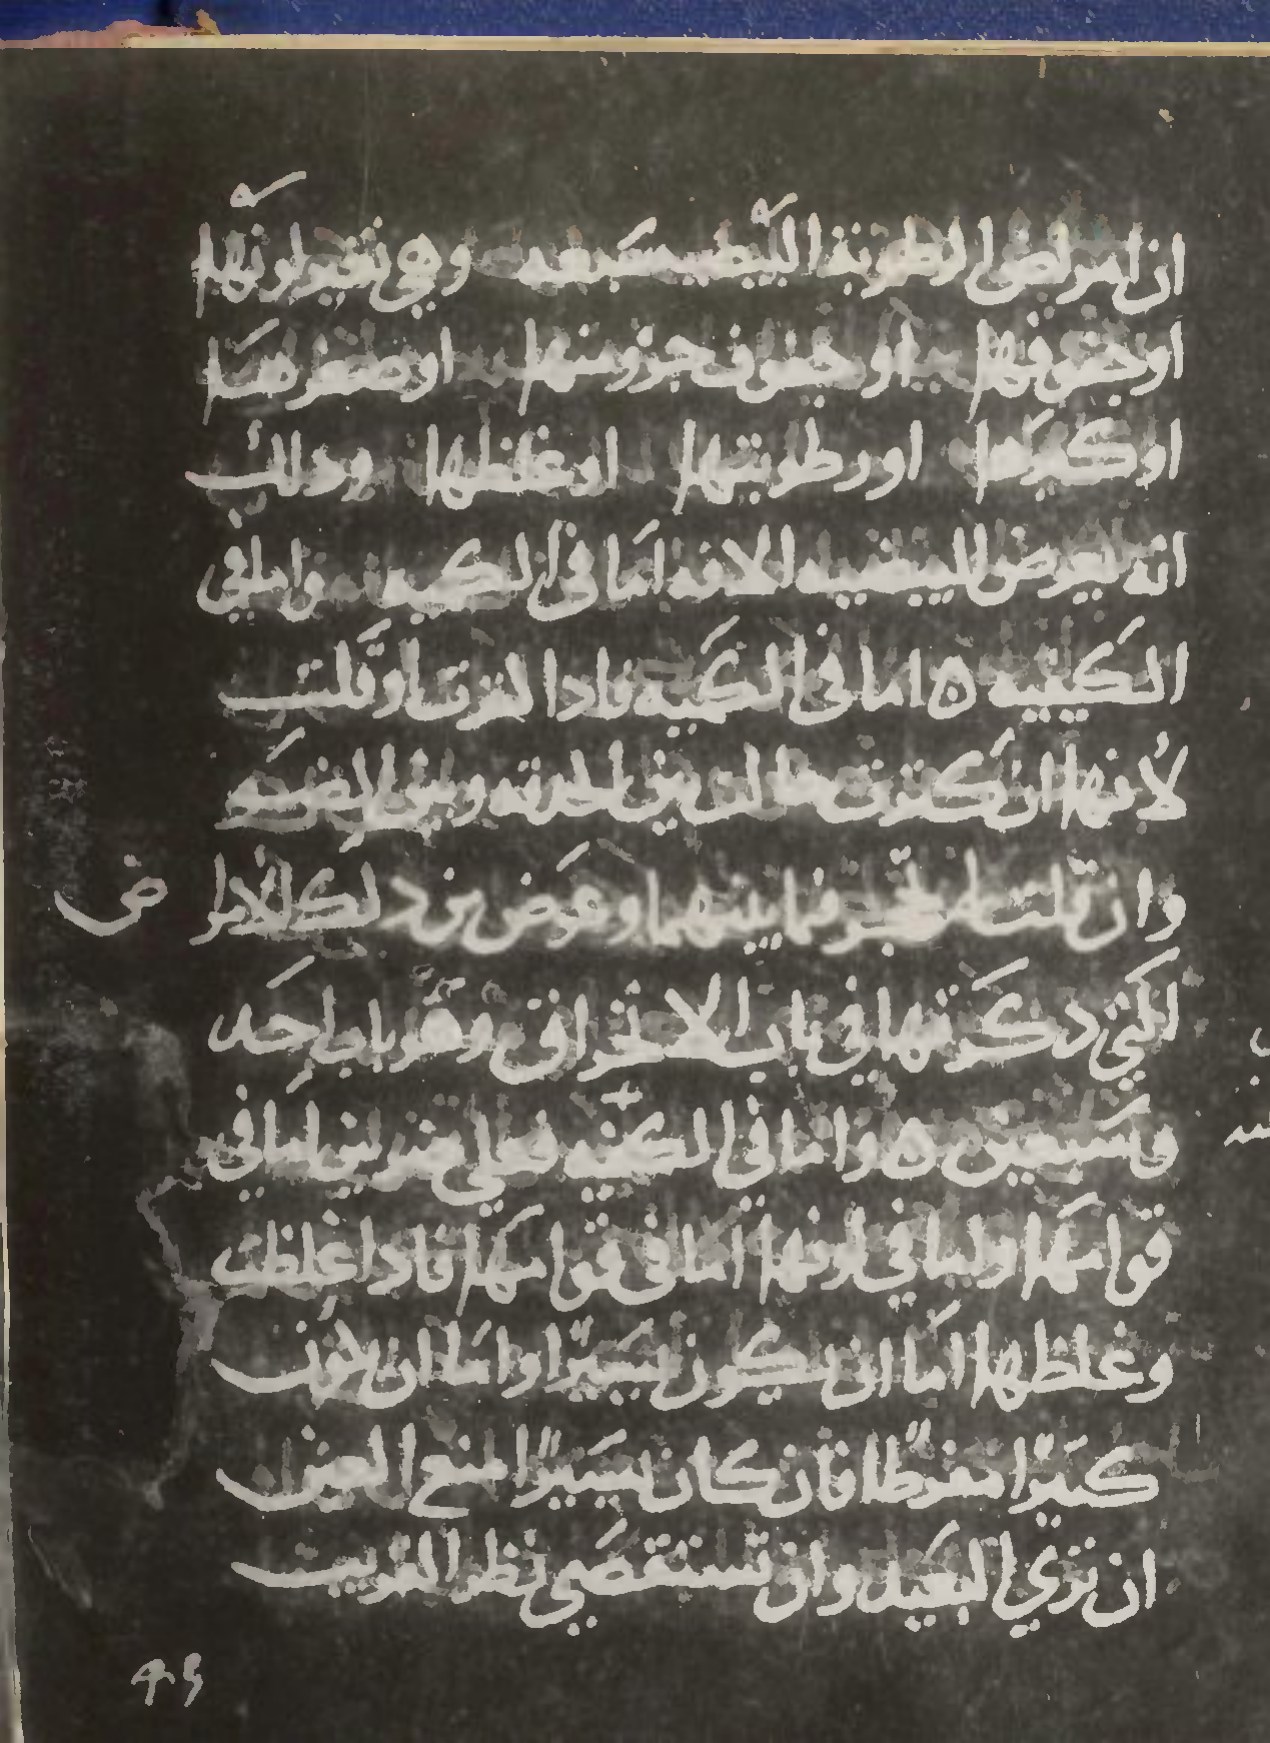 ان امراض الرطوبة البيضية سبعة وهي تغير لونها
او جفوفها او جفوف جزو منها او صغرها
او كبرها او رطوبتها او غلظها وذلك
انه تعرض للبيضية الافة اما في الكمية واما في
الكيفية ه اما في الكمية فاذا كثرت او قلت
لانها ان كثرت حالت بين الحدقة وبين الضو
وان قلت لم تحجز فيما بينهما وعرض من ذلك الامراض
التي ذكرتها في باب الانخراق وهو باب احد
وسبعين ه واما في الكيفية فعلى ضربين اما في
قوامها واما في لونها اما في قوامها فاذا غلظت
وغلظها اما ان يكون يسيرا واما ان يكون
كثيرا مفرطا فان كان يسيرا منع العين
ان ترى البعيد وان تستقصي نظر القريب